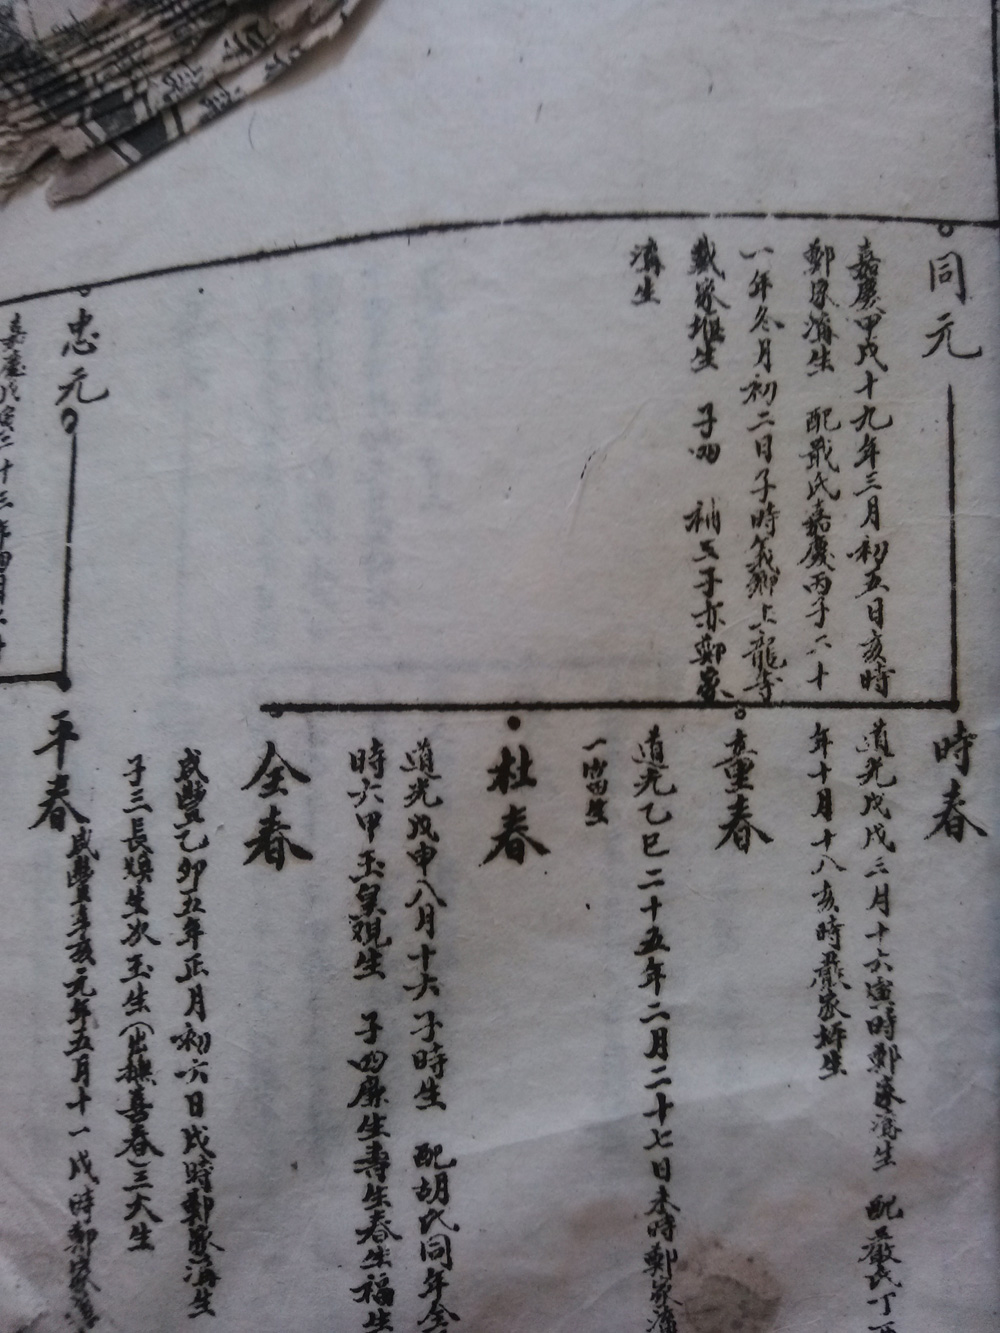 同元
嘉慶甲戌十九年三月初五日亥時
鄭家濟生 配戴氏嘉慶丙子二十
一年冬月初二日子時義鄉土龍寺
戴家堆生 子四 補三子亦鄭家
濟生
忠元
嘉慶戊寅二十三年四月二十
時春
道光戊戌三月十六寅時鄭家濟生 配嚴氏丁酉
年十月十八亥時嚴家坪生
童春
道光乙巳二十五年二月二十七日未時鄭家濟
一房四生
杜春
道光戊申八月十六子時生 配胡氏同年全
時六甲玉皇觀生 子四廉生壽生春生福生
全春
咸豐乙卯五年正月初六日戌時鄭家濟生
子三長煥生次玉生(出撫喜春)三大生
平春
咸豐辛亥元年五月十一戌時鄭家濟